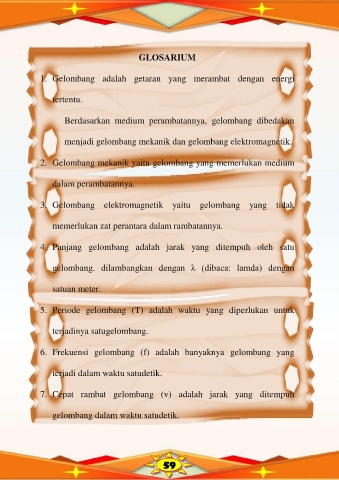 GLOSARIUM
1. Gelombang adalah getaran yang merambat dengan energi
tertentu.
Berdasarkan medium perambatannya, gelombang dibedakan
menjadi gelombang mekanik dan gelombang elektromagnetik.
2. Gelombang mekanik yaitu gelombang yang memerlukan medium
dalam perambatannya.
3. Gelombang elektromagnetik yaitu gelombang yang tidak
memerlukan zat perantara dalam rambatannya.
4. Panjang gelombang adalah jarak yang ditempuh oleh satu
gelombang. dilambangkan dengan λ (dibaca: lamda) dengan
satuan meter.
5. Periode gelombang (T) adalah waktu yang diperlukan untuk
terjadinya satugelombang.
6. Frekuensi gelombang (f) adalah banyaknya gelombang yang
terjadi dalam waktu satudetik.
7. Cepat rambat gelombang (v) adalah jarak yang ditempuh
gelombang dalam waktu satudetik.
59